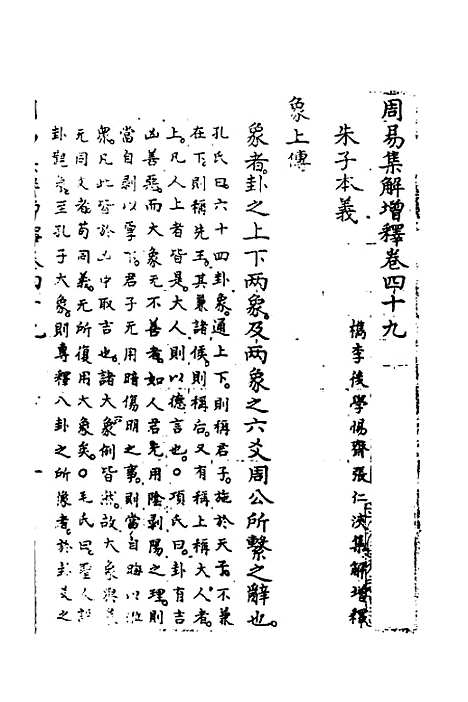 周易集解增釋卷四十九
朱子本義
檇李後學惕齋張仁浹集解增釋
象上傳
象者卦之上下两象及两象之六爻周公所繫之辭也
孔氏曰六十四卦象通上下則稱君子施於天子不兼
在下則稱先王其兼諸侯則稱后又有稱上稱大人者
上凡人上者皆是大人則以德言也○項氏曰卦有吉
凶善惡而大象无不善者如人君无用陰剥陽之理則
當自剥以厚下君子无用暗傷明之事則當自晦以涖
衆凡此皆於凶中取吉也諸大象例皆然故大象與
无同文者苟同義无所復用大象矣○毛氏曰聖人
卦觀象至孔子大象則專釋八卦之所像者於卦爻之